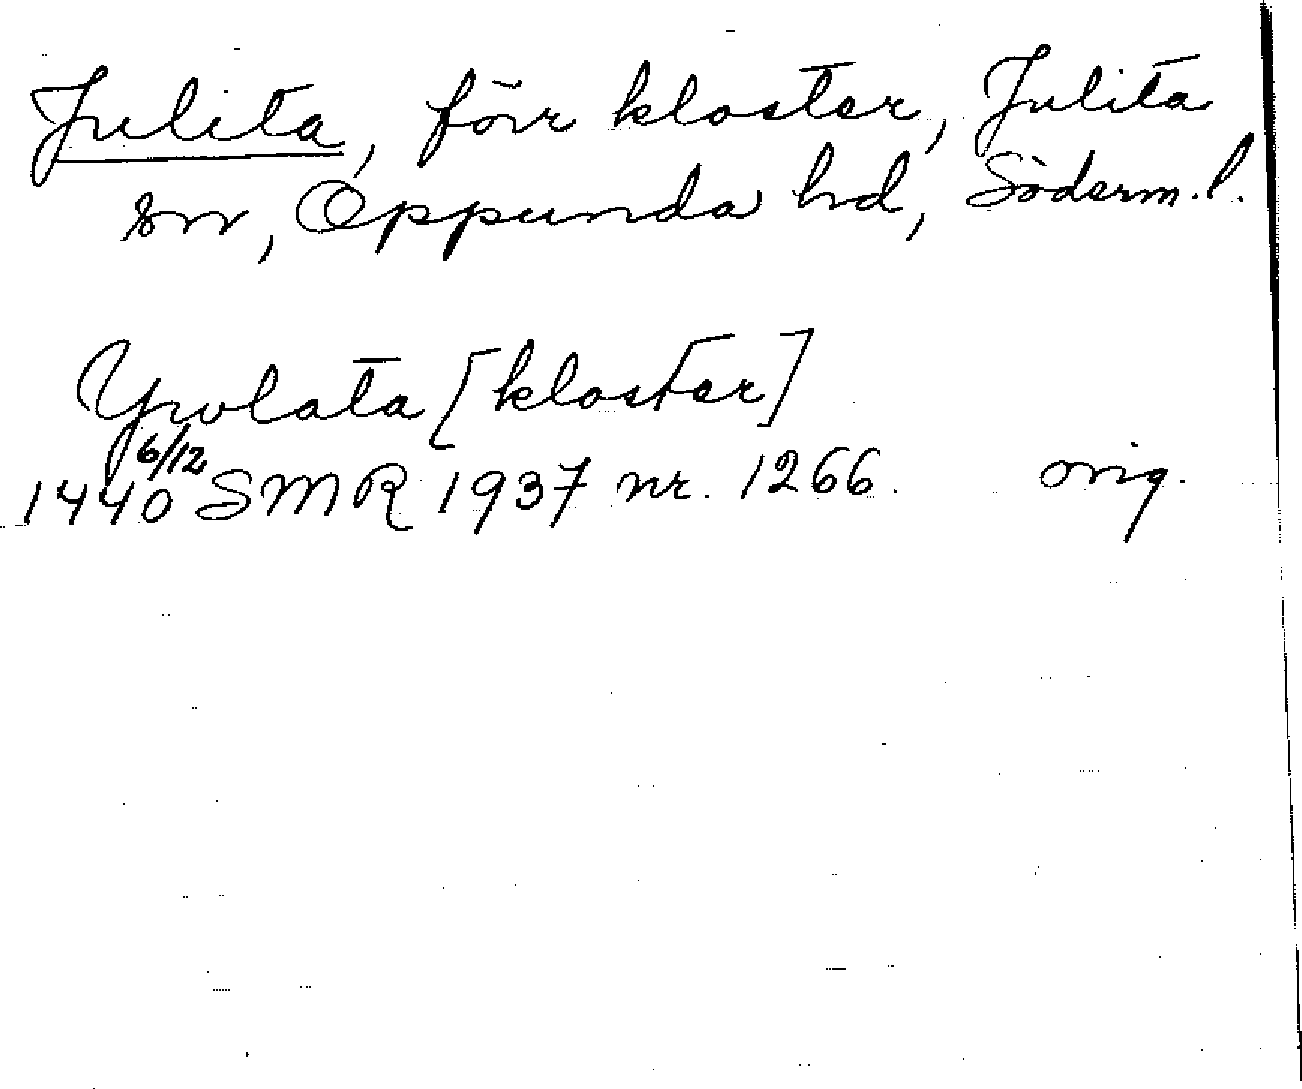 Julita, förr kloster, Julita
sn, Oppunda hd, Söderm. l.
Ywlata [kloster]
1440 6/12 SMR 1937 nr. 1266. orig.